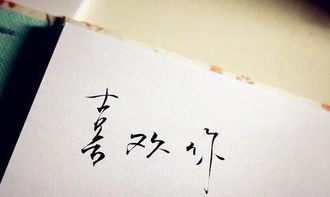 喜欢你